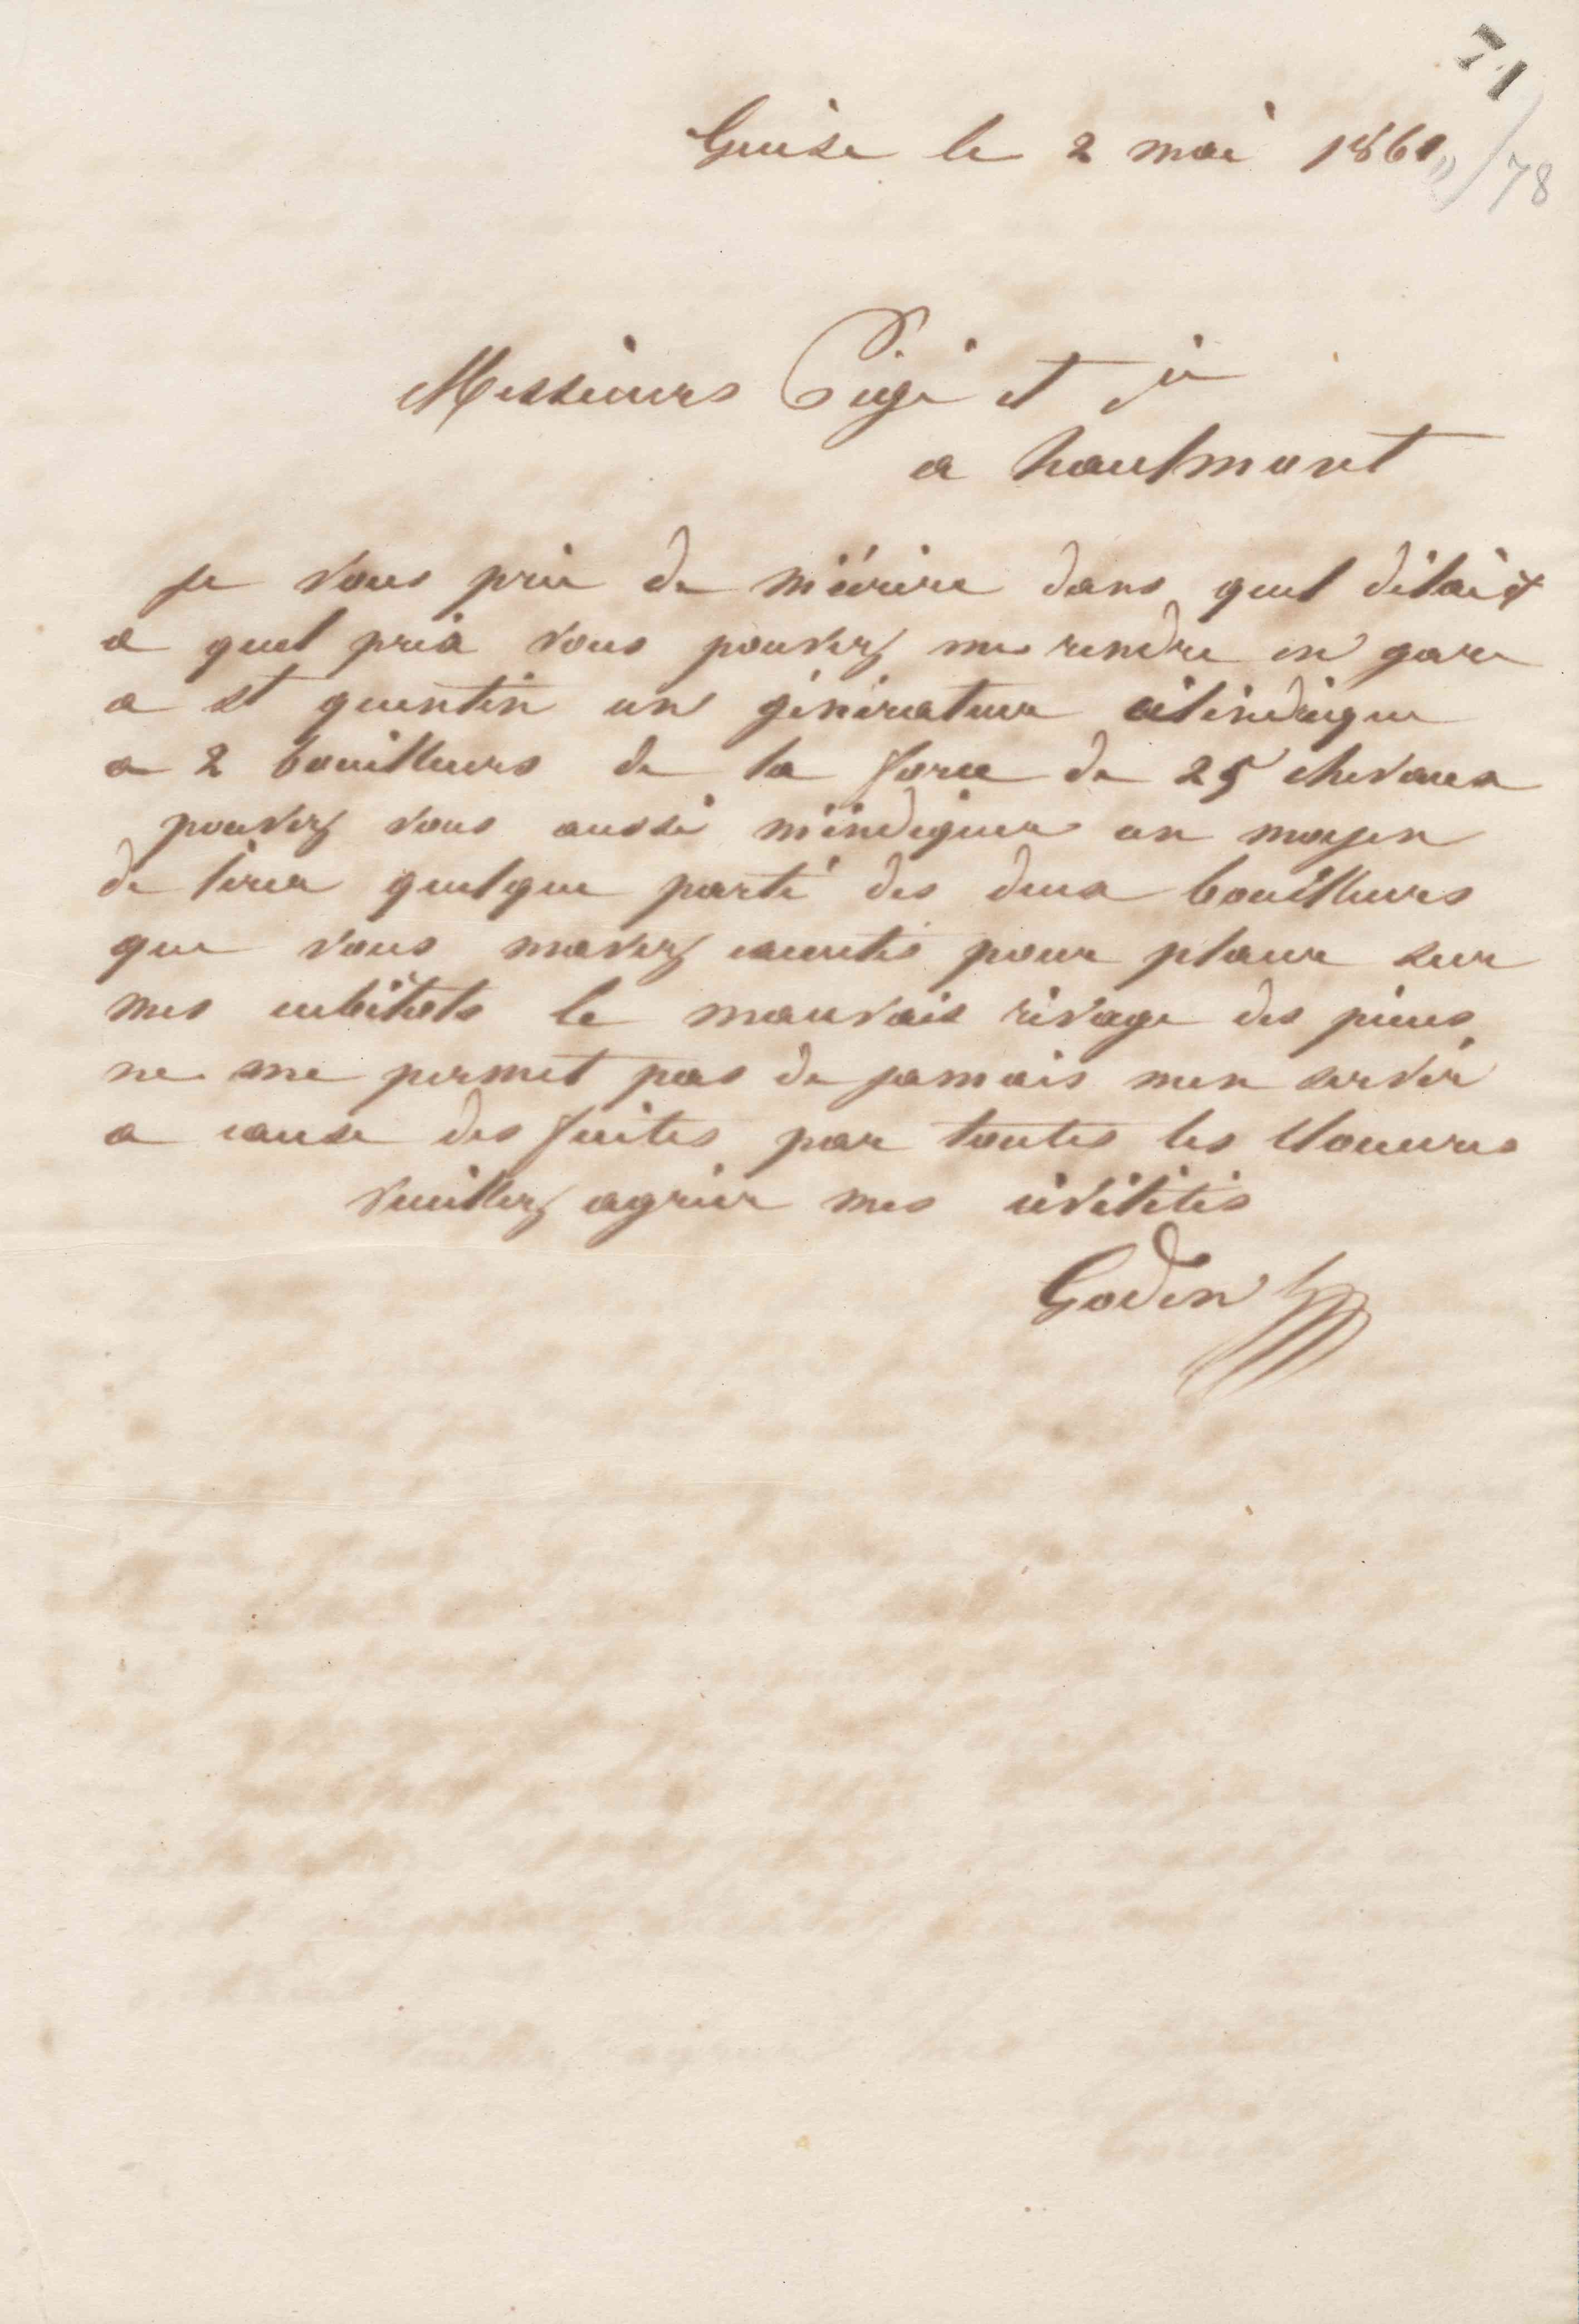 71
Guise le 2 mai 1860 /78
Messieurs Pigé et cie
a hautmont
je vous prie de m'écrire dans quel délai et
a quel prix vous pouvez me rendre en gare
a st quentin un générateur cilindrique
a 2 bouilleurs de la force de 25 chevaux
pouvez vous aussi m'indiquer un moyen
de tirer quelque parti des deux bouilleurs
que vous mavez vendus pour placer sur
mes cubilots le mauvais rivage des pièces
ne me permet pas de jamais men servir
a cause des fuites par toutes les clouures
veuillez agréer mes civilités
Godin